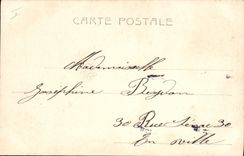 CARTE POSTALE
Mademoiselle
Joséphine
30 Rue 30
En ville